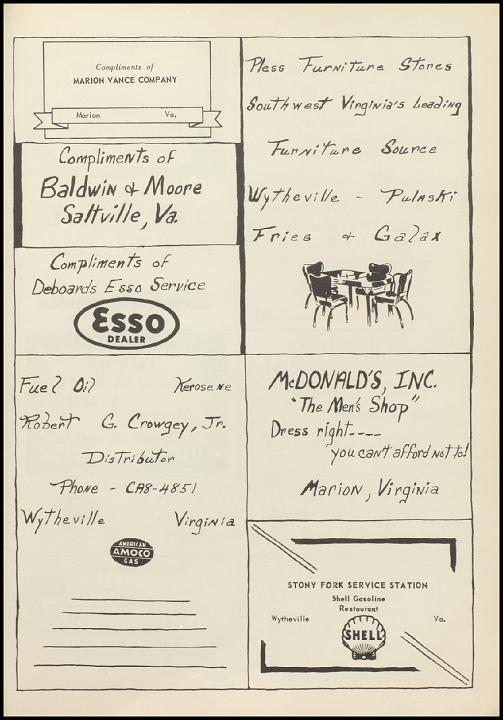 Compliments of
MARION VANCE COMPANY
Marion Va.
Compliments of
Baldwin & Moore
Saltville, Va.
Compliments of
Deboards Esso Service
Esso
DEALER
Fuel Oil Kerosene
Robert G. Crowgey, Jr.
Distributor
Phone - CA8-4851
Wytheville Virginia
AMERICAN
AMOCO
GAS
Pless Furniture Stores
Southwest Virginia's Leading
Furniture Source
Wytheville - Pulaski
Fries & Galax
McDONALD'S, INC.
"The Men's Shop"
Dress right----
you can't afford not to!
Marion, Virginia
STONY FORK SERVICE STATION
Shell Gasoline
Restaurant
Wytheville Va.
SHELL